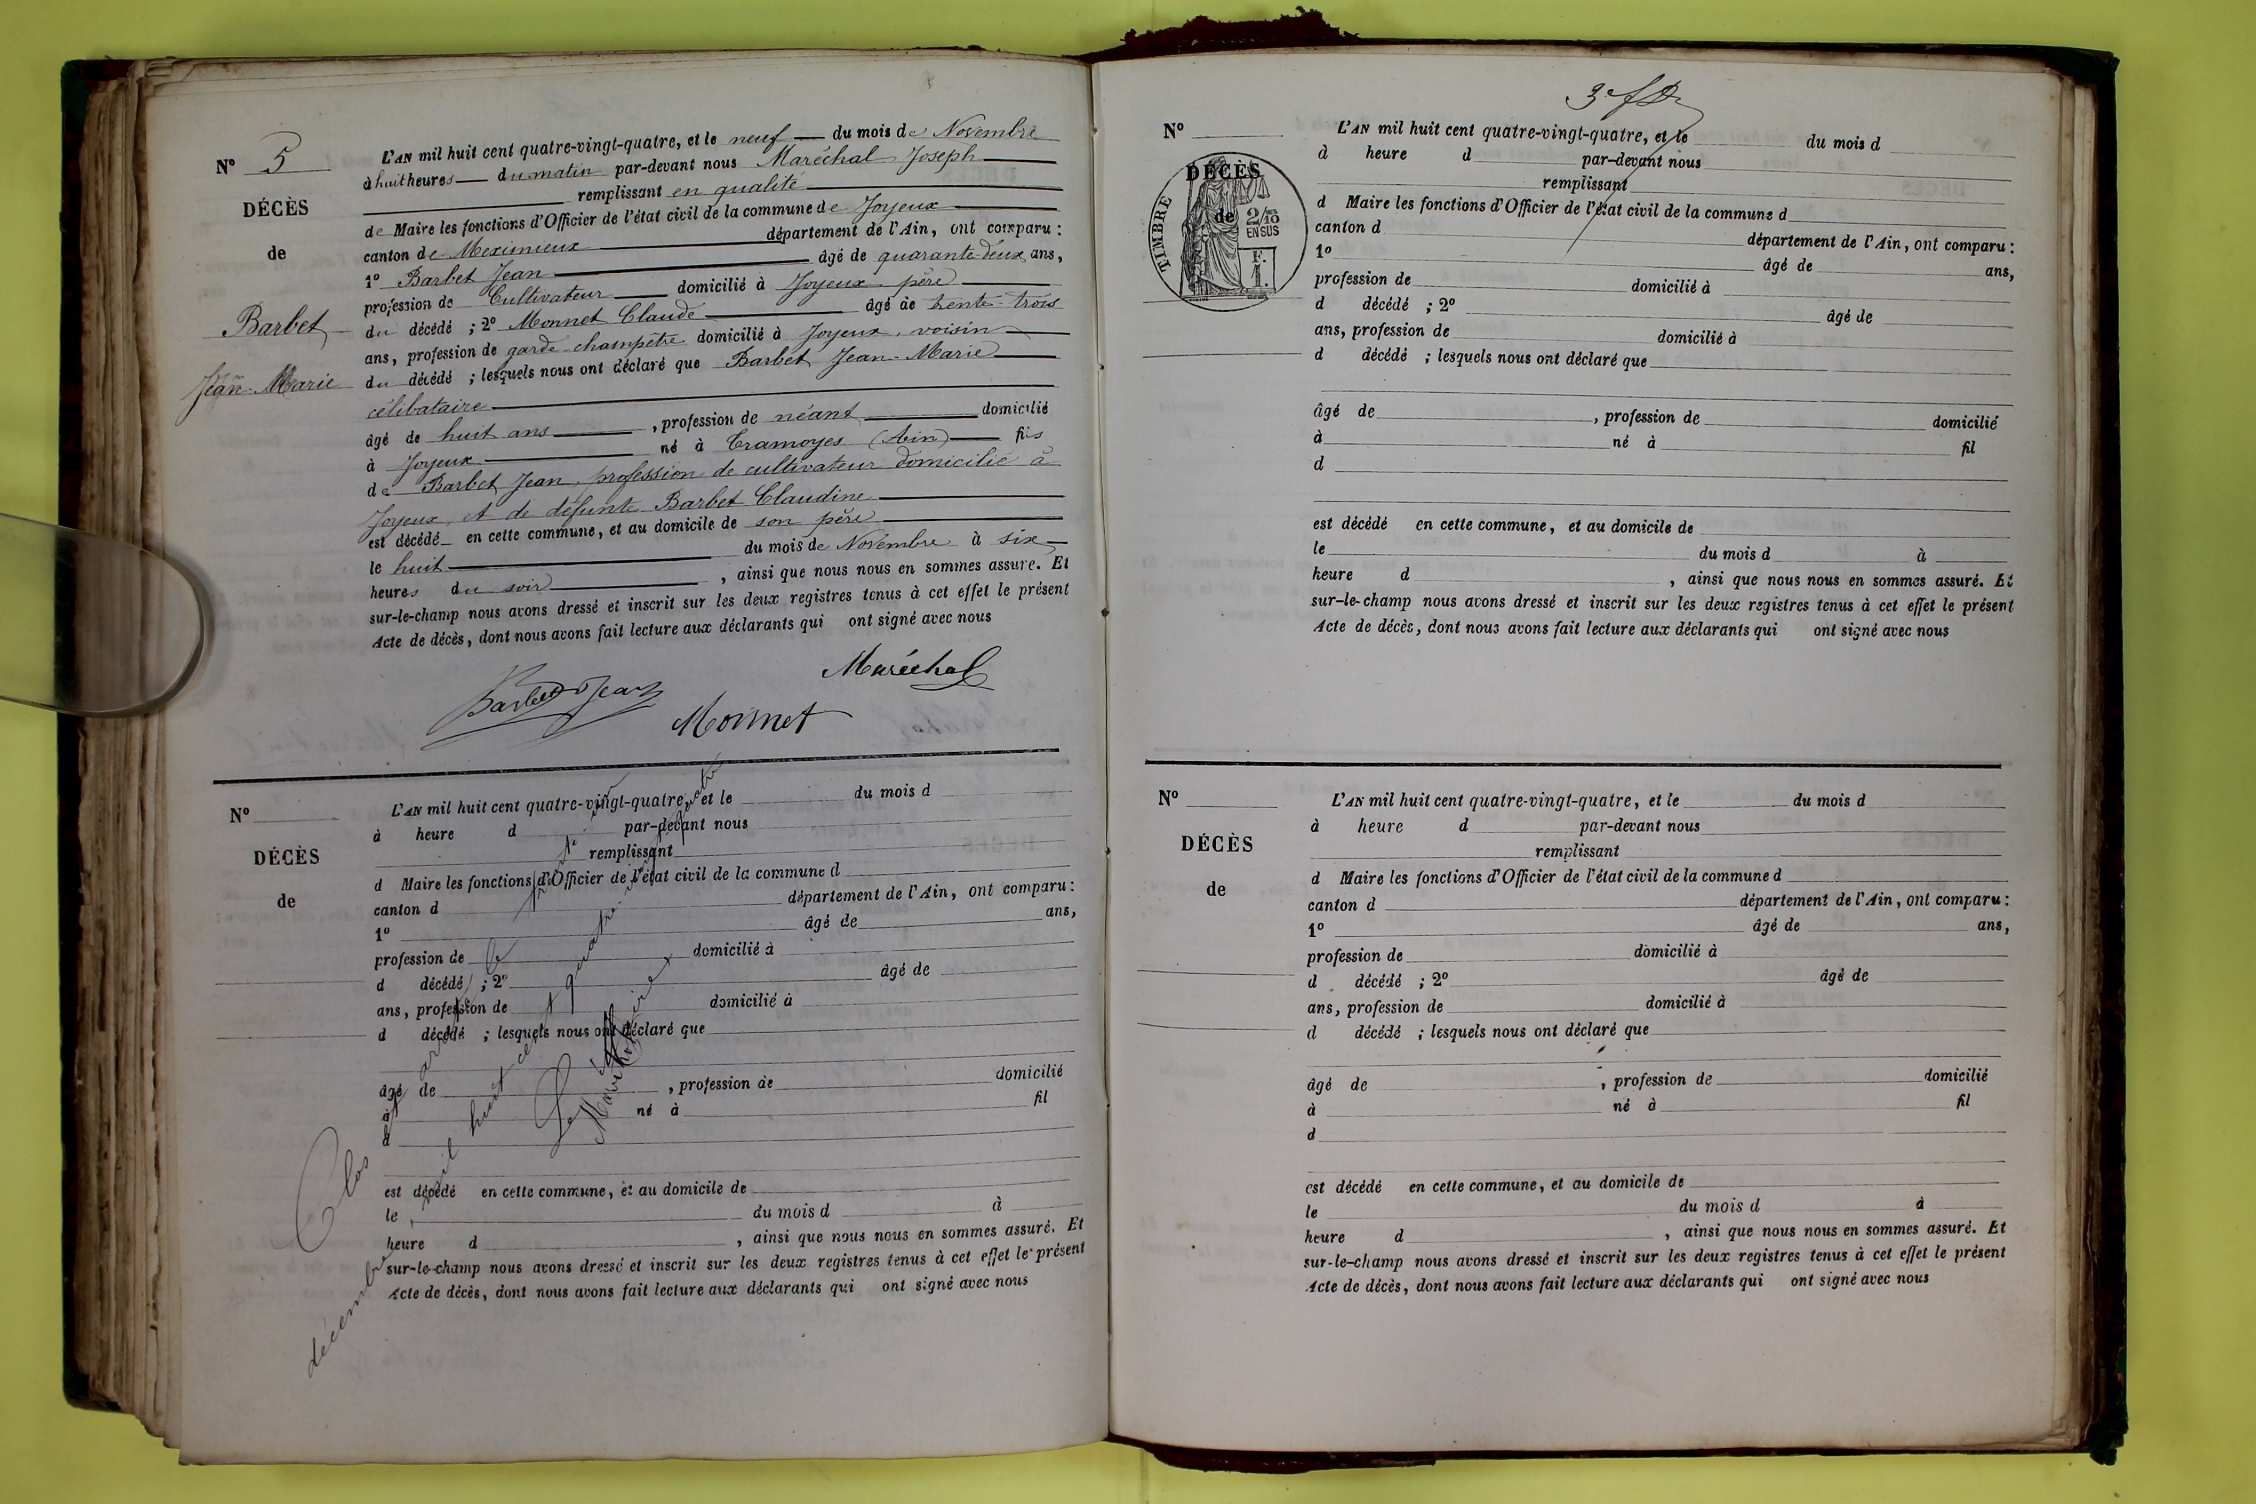 N° 5
DÉCÈS
de
Barbet
Jean-Marie
L'AN mil huit cent quatre-vingt-quatre, et le neuf du mois de Novembre
à huit heures du matin par-devant nous Maréchal Joseph
remplissant en qualité
de Maire les fonctions d'Officier de l'état civil de la commune de Joyeux
canton de Meximieux département de l'Ain, ont comparu :
1° Barbet Jean âgé de quarante deux ans,
profession de Cultivateur domicilié à Joyeux, père
du décédé ; 2° Monnet Claude âgé de trente-trois
ans, profession de garde-champêtre domicilié à Joyeux, voisin
du décédé ; lesquels nous ont déclaré que Barbet Jean-Marie
célibataire
âgé de huit ans , profession de néant domicilié
à Joyeux né à Tramoyes (Ain) fils
de Barbet Jean, profession de cultivateur domicilié à
Joyeux, et de défunte Barbet Claudine
est décédé en cette commune, et au domicile de son père
le huit du mois de Novembre à six
heures du soir , ainsi que nous nous en sommes assuré. Et
sur-le-champ nous avons dressé et inscrit sur les deux registres tenus à cet effet le présent
Acte de décès, dont nous avons fait lecture aux déclarants qui ont signé avec nous
Maréchal
Barbet Jean
Monnet
N°
DÉCÈS
de
L'AN mil huit cent quatre-vingt-quatre, et le du mois d
à heure d par-devant nous
remplissant
d Maire les fonctions d'Officier de l'état civil de la commune d
canton d département de l'Ain, ont comparu :
1° âgé de ans,
profession de domicilié à
d décédé ; 2° âgé de
ans, profession de domicilié à
d décédé ; lesquels nous ont déclaré que
âgé de , profession de domicilié
à né à fil
d
est décédé en cette commune, et au domicile de
le du mois d à
heure d , ainsi que nous nous en sommes assuré. Et
sur-le-champ nous avons dressé et inscrit sur les deux registres tenus à cet effet le présent
Acte de décès, dont nous avons fait lecture aux déclarants qui ont signé avec nous
Clos et arrêté le trente et un
décembre mil huit cent quatre-vingt-quatre
Le Maire
Maréchal
N°
DÉCÈS
de
TIMBRE
2/10
EN SUS
F.
1.
L'AN mil huit cent quatre-vingt-quatre, et le du mois d
à heure d par-devant nous
remplissant
d Maire les fonctions d'Officier de l'état civil de la commune d
canton d département de l'Ain, ont comparu :
1° âgé de ans,
profession de domicilié à
d décédé ; 2° âgé de
ans, profession de domicilié à
d décédé ; lesquels nous ont déclaré que
âgé de , profession de domicilié
à né à fil
d
est décédé en cette commune, et au domicile de
le du mois d à
heure d , ainsi que nous nous en sommes assuré. Et
sur-le-champ nous avons dressé et inscrit sur les deux registres tenus à cet effet le présent
Acte de décès, dont nous avons fait lecture aux déclarants qui ont signé avec nous
N°
DÉCÈS
de
L'AN mil huit cent quatre-vingt-quatre, et le du mois d
à heure d par-devant nous
remplissant
d Maire les fonctions d'Officier de l'état civil de la commune d
canton d département de l'Ain, ont comparu :
1° âgé de ans,
profession de domicilié à
d décédé ; 2° âgé de
ans, profession de domicilié à
d décédé ; lesquels nous ont déclaré que
âgé de , profession de domicilié
à né à fil
d
est décédé en cette commune, et au domicile de
le du mois d à
heure d , ainsi que nous nous en sommes assuré. Et
sur-le-champ nous avons dressé et inscrit sur les deux registres tenus à cet effet le présent
Acte de décès, dont nous avons fait lecture aux déclarants qui ont signé avec nous